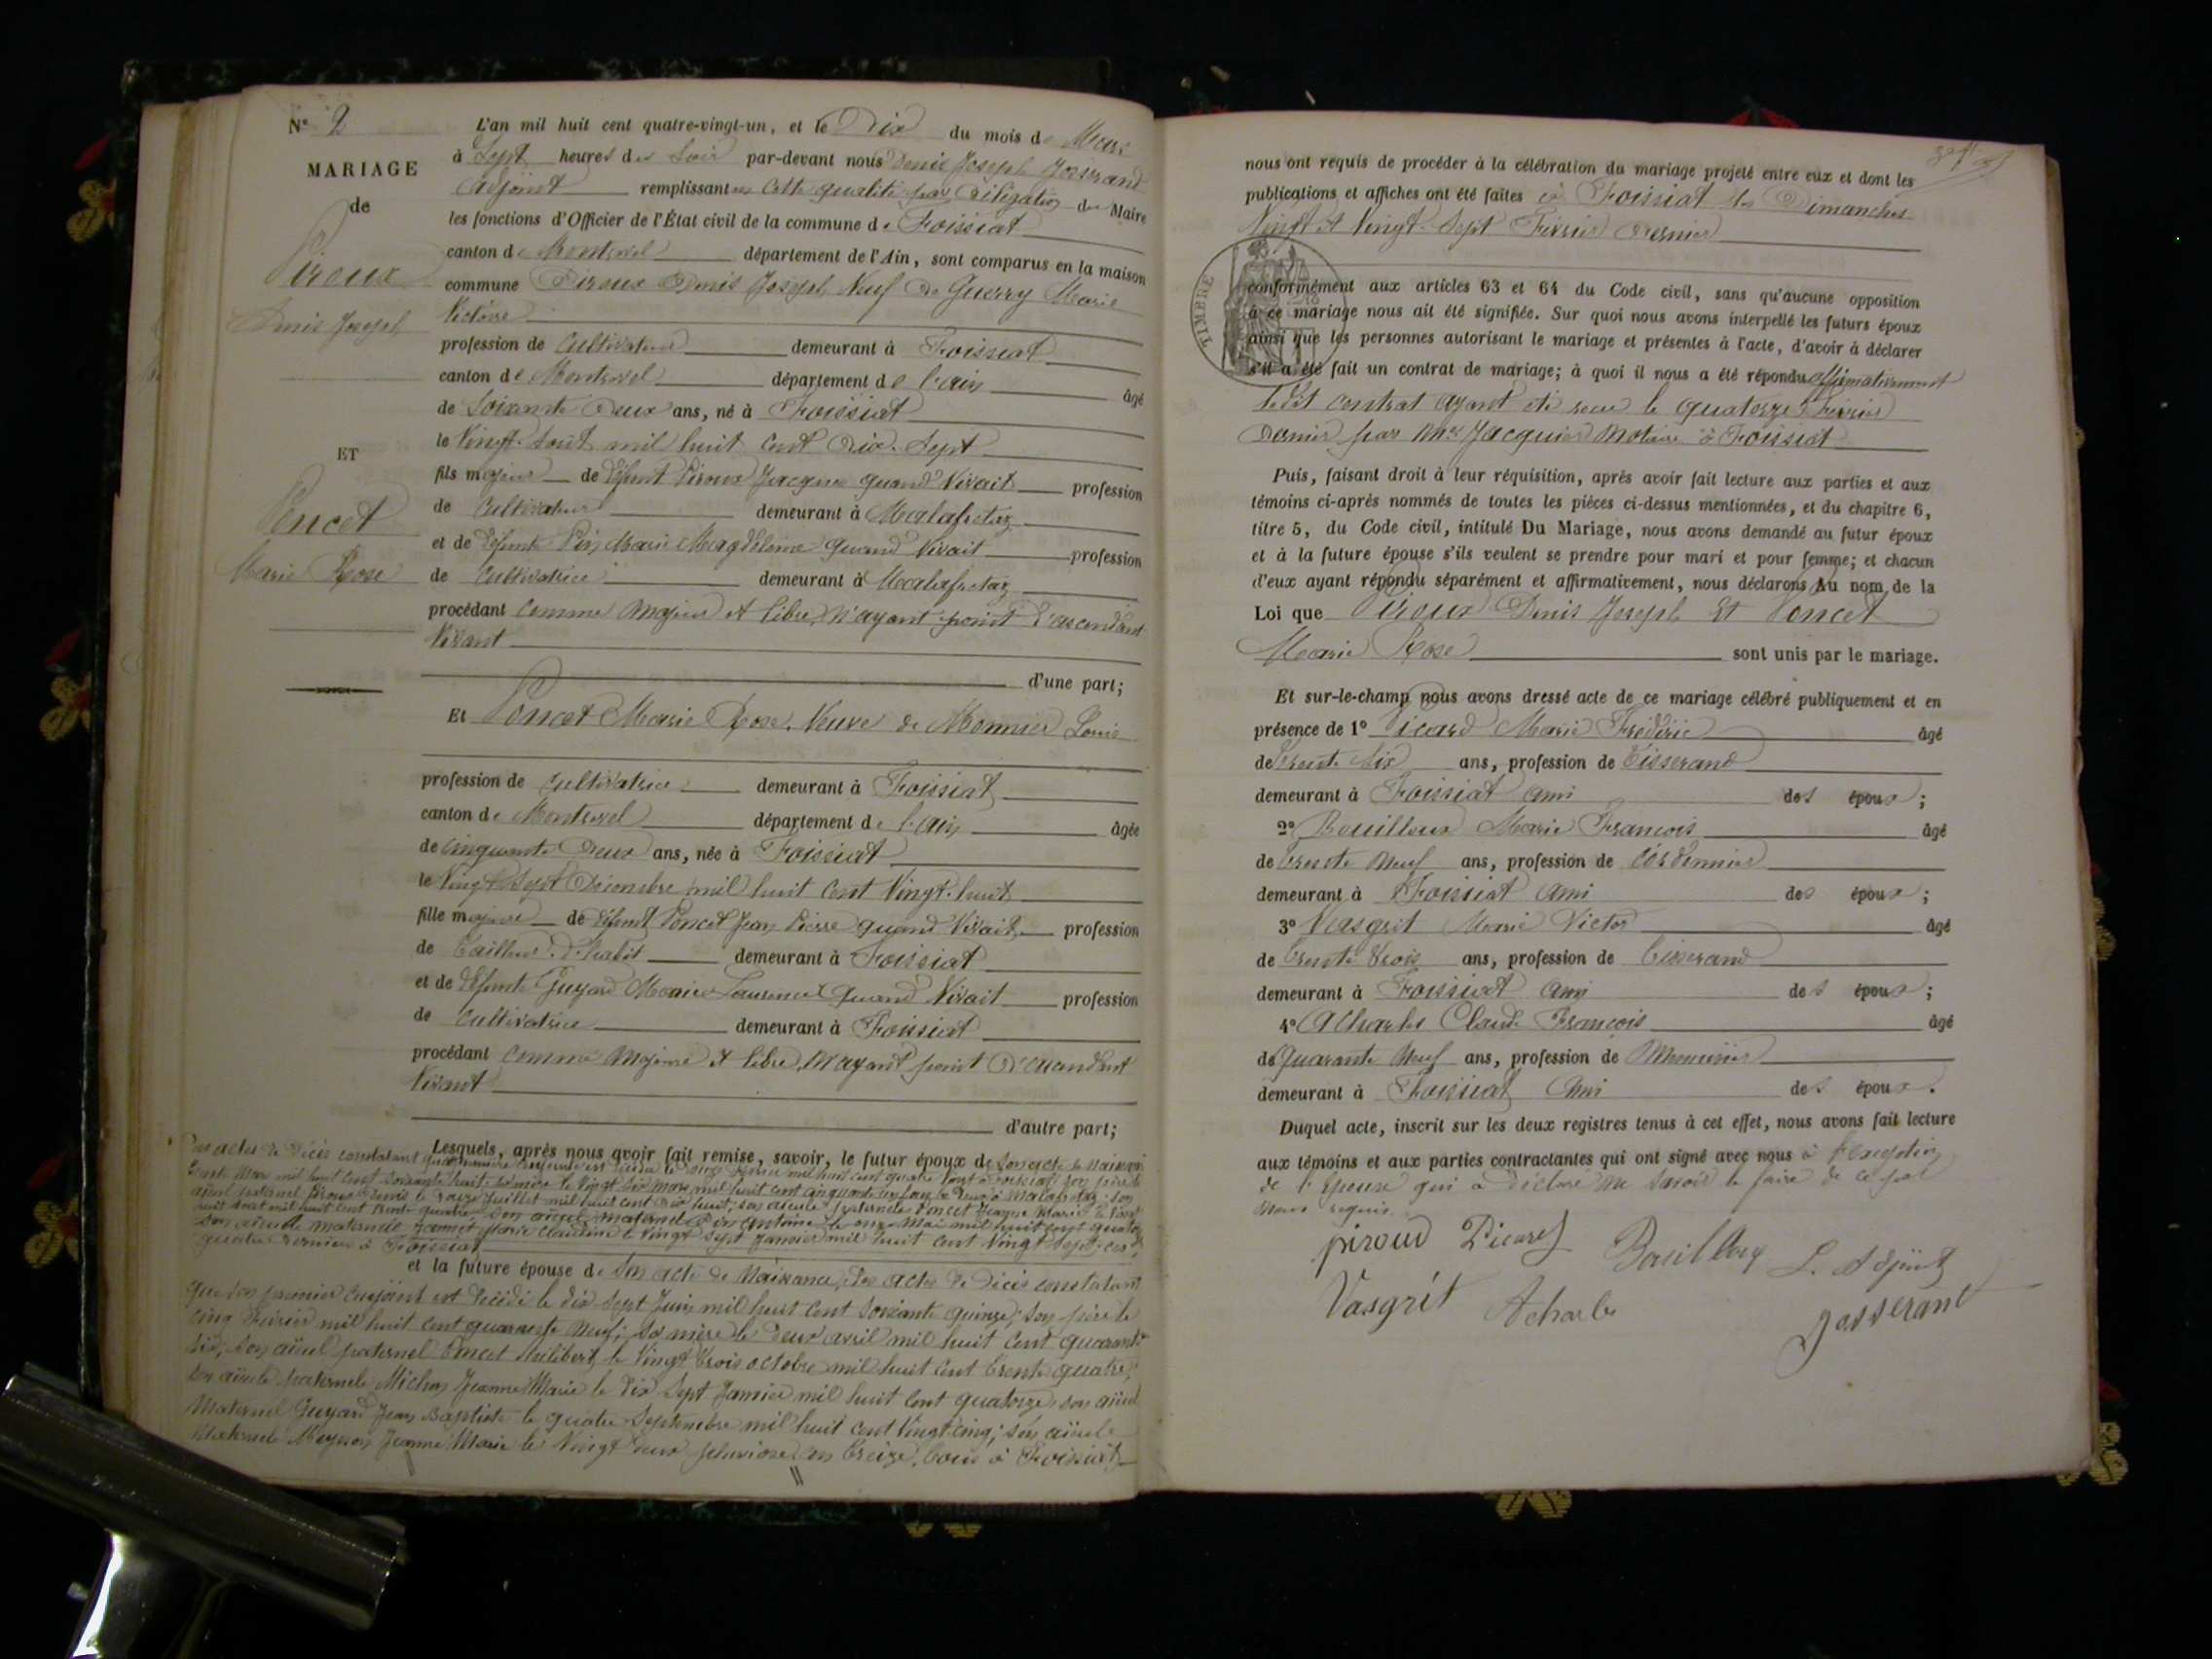 N° 2
MARIAGE
de
Piroux
Denis Joseph
ET
Poncet
Marie Rose
L'an mil huit cent quatre-vingt-un, et le Dix du mois de Mars
à Sept heures du Soir par-devant nous Denis Joseph Josserand
adjoint remplissant en cette qualité par délégation du Maire
les fonctions d'Officier de l'État civil de la commune de Foissiat
canton de Montrevel département de l'Ain, sont comparus en la maison
commune Piroux Denis Joseph Veuf de Guerry Marie
Victoire
profession de Cultivateur demeurant à Foissiat
canton de Montrevel département de l'ain âgé
de Soixante Deux ans, né à Foissiat
le Vingt août mil huit cent Dix-Sept
fils majeur de défunt Piroux Jacques quand Vivait profession
de Cultivateur demeurant à Malafretaz
et de défunte Pin Marie Magdeleine quand Vivait profession
de Cultivatrice demeurant à Malafretaz
procédant comme majeur et libre, n'ayant point d'ascendant
Vivant
d'une part;
Et Poncet Marie Rose. Veuve de Monnier Louis
profession de Cultivatrice demeurant à Foissiat
canton de Montrevel département de l'ain âgée
de Cinquante Deux ans, née à Foissiat
le Vingt Sept Décembre mil huit cent Vingt-huit
fille majeure de défunt Poncet Jean Pierre quand Vivait profession
de Tailleur d'habit demeurant à Foissiat
et de défunte Guyard Marie Laurence quand Vivait profession
de Cultivatrice demeurant à Foissiat
procédant comme majeure et libre, n'ayant point d'ascendant
Vivant
d'autre part;
Lesquels, après nous avoir fait remise, savoir, le futur époux de Son acte de Naissance
Des actes de Décès constatant
mil huit cent soixante huit; sa mère le Vingt Six Mars mil huit cent cinquante
aïeul paternel Piroux Denis le Juillet mil huit cent Dix huit; son aïeule paternelle Poncet Jeanne Marie le Vingt
huit août mil huit cent Trente quatre; son aïeul maternel Pin Antoine le onze Mai mil huit cent quatorze
son aïeule maternelle Marie Claudine le Vingt Sept Janvier mil huit cent Vingt Sept; ces
quatre derniers à Foissiat
et la future épouse de Son acte de Naissance, Des actes de Décès constatant
que son premier conjoint est décédé le dix Sept Juin mil huit cent Soixante quinze; son père le
cinq Février mil huit cent quarante Neuf; Sa mère le Deux avril mil huit cent quarante
Six; Son aïeul paternel Poncet Philibert le Vingt Trois octobre mil huit cent Trente quatre;
Son aïeule paternelle Michon Jeanne Marie le Dix Sept Janvier mil huit cent quatorze, son aïeul
Maternel Guyard Jean Baptiste le quatre Septembre mil huit cent Vingt-cinq; son aïeule
Maternelle Jeanne Marie le Vingt Deux pluviose an Treize. Tous à Foissiat
nous ont requis de procéder à la célébration du mariage projeté entre eux et dont les
publications et affiches ont été faites à Foissiat les Dimanches
Vingt et Vingt-Sept Février Dernier
TIMBRE
conformément aux articles 63 et 64 du Code civil, sans qu'aucune opposition
à ce mariage nous ait été signifiée. Sur quoi nous avons interpellé les futurs époux
ainsi que les personnes autorisant le mariage et présentes à l'acte, d'avoir à déclarer
s'il a été fait un contrat de mariage; à quoi il nous a été répondu affirmativement
ledit contrat ayant été reçu le quatorze Février
Dernier par Me Jacquier Notaire à Foissiat
Puis, faisant droit à leur réquisition, après avoir fait lecture aux parties et aux
témoins ci-après nommés de toutes les pièces ci-dessus mentionnées, et du chapitre 6,
titre 5, du Code civil, intitulé Du Mariage, nous avons demandé au futur époux
et à la future épouse s'ils veulent se prendre pour mari et pour femme; et chacun
d'eux ayant répondu séparément et affirmativement, nous déclarons Au nom de la
Loi que Piroux Denis Joseph Et Poncet
Marie Rose sont unis par le mariage.
Et sur-le-champ nous avons dressé acte de ce mariage célébré publiquement et en
présence de 1° Picard Marie Frédéric âgé
de Trente Six ans, profession de Tisserand
demeurant à Foissiat ami des époux;
2° Bouilloux Marie François âgé
de Trente Neuf ans, profession de Cordonnier
demeurant à Foissiat ami des époux;
3° Vasgrit Marie Victor âgé
de Trente Trois ans, profession de Tisserand
demeurant à Foissiat ami des époux;
4° Acharles Claude François âgé
de Quarante Neuf ans, profession de Menuisier
demeurant à Foissiat ami des époux.
Duquel acte, inscrit sur les deux registres tenus à cet effet, nous avons fait lecture
aux témoins et aux parties contractantes qui ont signé avec nous à l'exception
de l'épouse qui a déclaré ne savoir le faire de ce par
Nous requis
piroud Picard Bouilloux L. Adjoint
Vasgrit Acharles Josserand